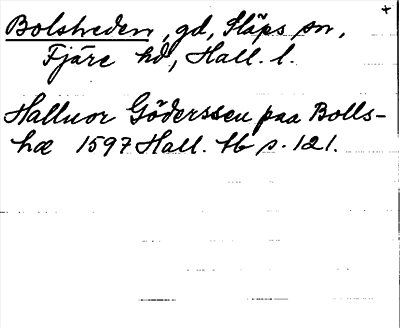 Bolsheden, gd, Släps sn, +
Fjäre hd, Hall. l.
Halluor Göderssen paa Bolls-
hæ 1597 Hall. tb s. 121.